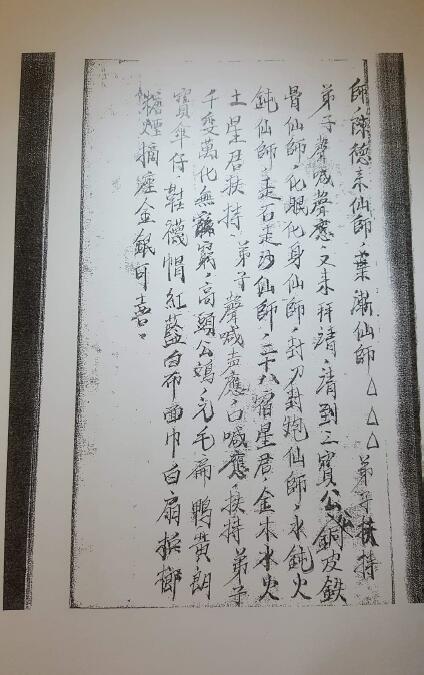 師陳德來仙師，葉潮仙師△△△弟子扶持
弟子聲喊聲應，又來拜請，請到三寶公，銅皮鉄
骨仙師，化眼化身仙師，封刀封炮仙師，水鈍火
鈍仙師，走石走沙仙師，二十八宿星君，金木水火
土星君扶持，弟子聲喊声應，口喊應，扶持弟子
千变萬化無窮，高頭公鷄，毛扁鴨黃
寶傘仔鞋襪帽紅藍白布面巾白扇檳榔
煙金銀可喜。